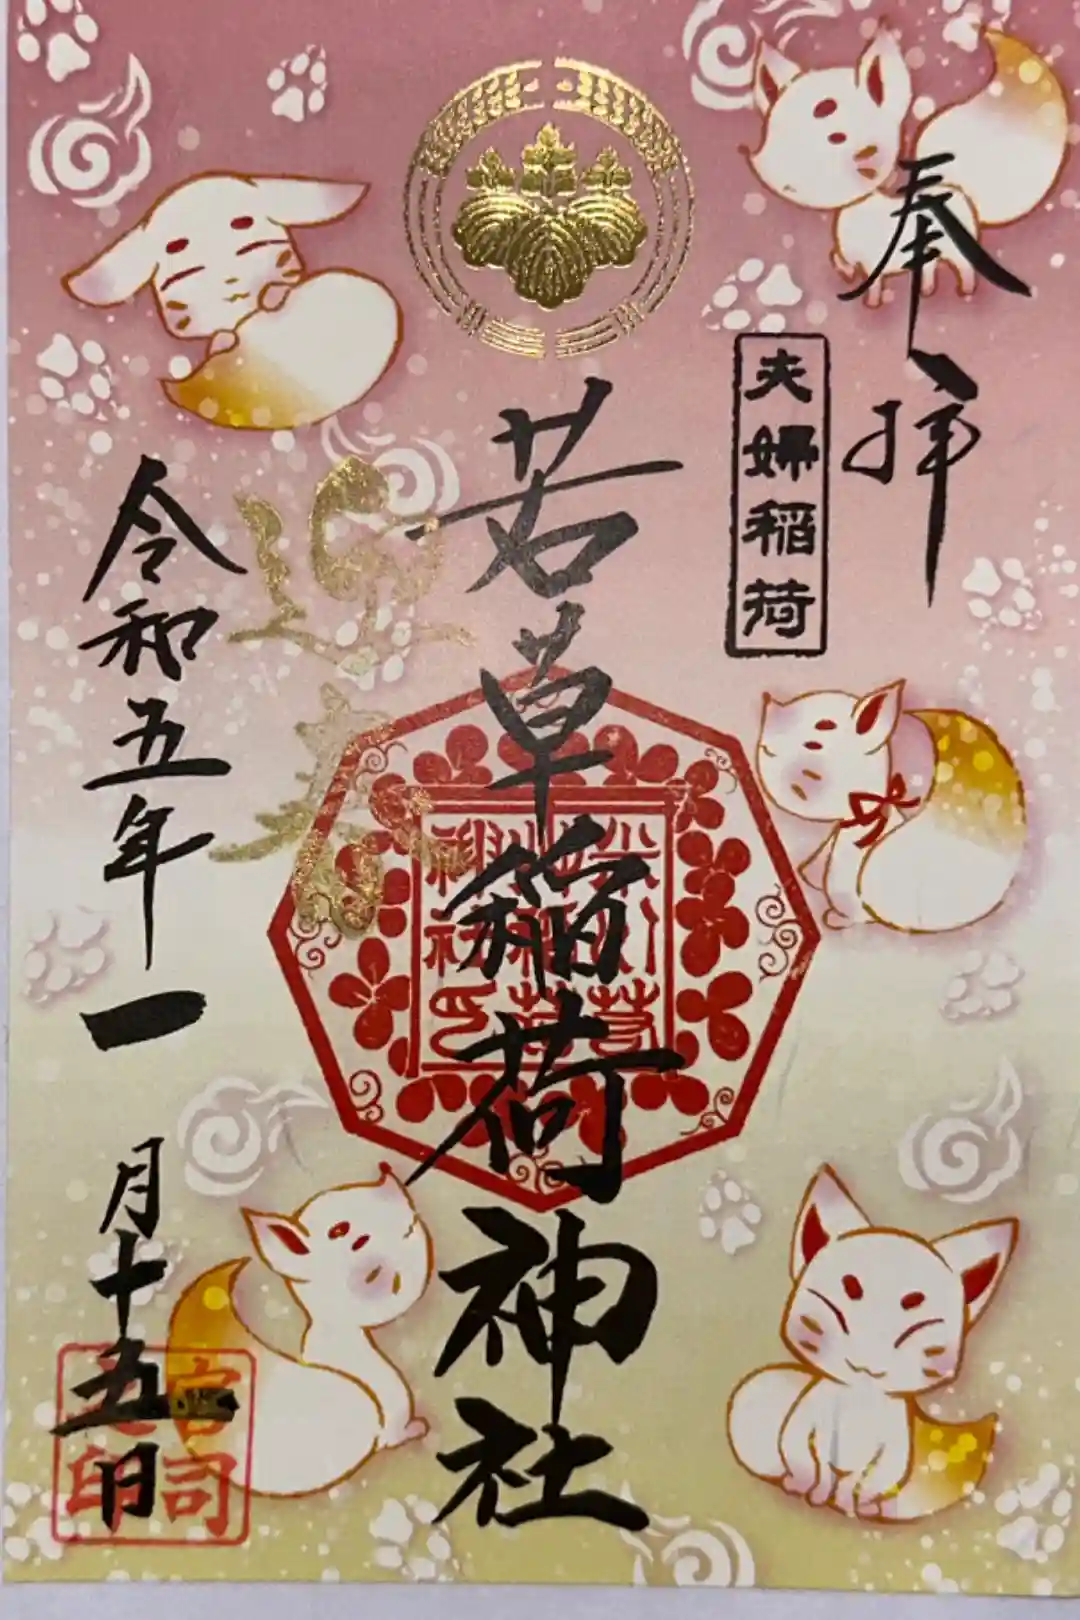 奉拝
夫婦稲荷
若草稲荷神社
迎春
令和五年一月十五日